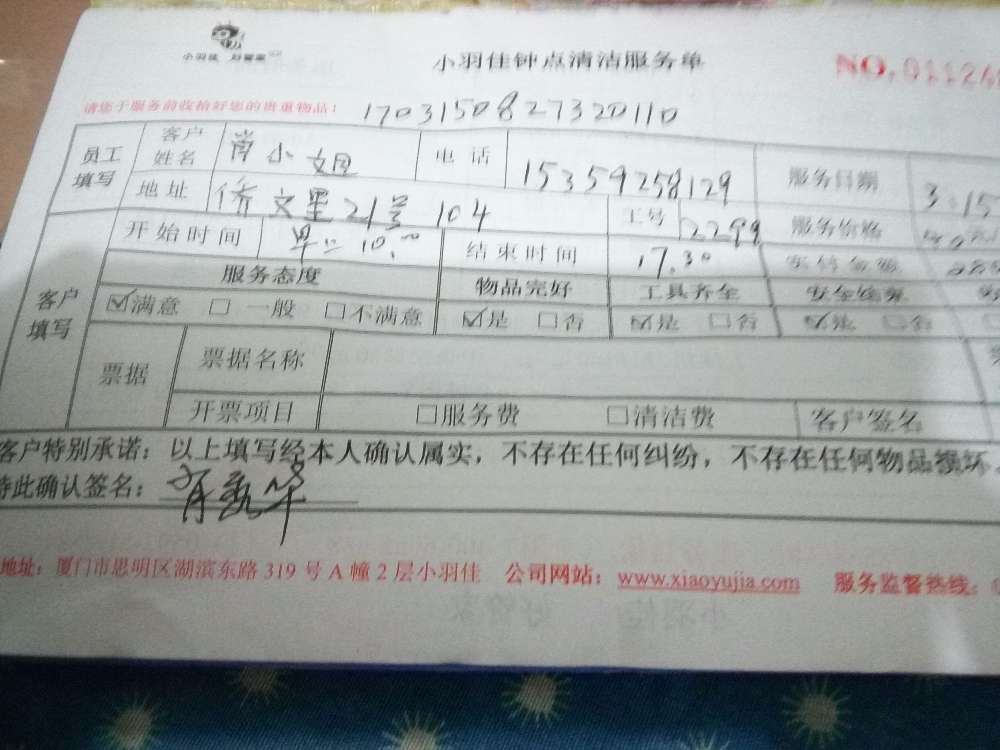 小羽佳 好管家
小羽佳钟点清洁服务单 NO.01124
请您于服务前收拾好您的贵重物品: 1703150827320110
员工填写 客户姓名 肖小姐 电话 15359258129 服务日期 3.15
地址 侨文里21号104 工号 2299 服务价格
客户填写 开始时间 结束时间 17.30
服务态度 物品完好 工具齐全
☑满意 □一般 □不满意 ☑是 □否 ☑是 □否 ☑是 □否
票据 票据名称
开票项目 □服务费 □清洁费 客户签名
客户特别承诺: 以上填写经本人确认属实, 不存在任何纠纷, 不存在任何物品损坏
特此确认签名:
地址: 厦门市思明区湖滨东路 319 号 A 幢 2 层小羽佳 公司网站: www.xiaoyujia.com 服务监督热线: